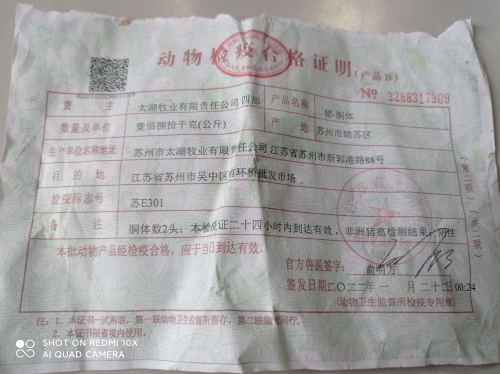 动物检疫合格证明(产品B)
№ 3288317309
货 主 太湖牧业有限责任公司四部 产品名称 猪-胴体
数量及单位 壹佰捌拾千克(公斤) 产 地 苏州市姑苏区
生产单位名称地址 苏州市太湖牧业有限责任公司 江苏省苏州市新郭港路88号
目 的 地 江苏省苏州市吴中区 环桥批发市场
检疫标志号 苏E301
备 注 胴体数2头;本检疫证二十四小时内到达有效,非洲猪瘟检测结果:阴性
本批动物产品经检疫合格,应于当日到达有效。
官方兽医签字:
签发日期:二〇二二年一 月二十二日00:24
(动物卫生监督所检疫专用章)
注:1. 本证书一式两联,第一联动物卫生监督所留存,第二联随货同行。
2. 本证书限省境内使用。
第二联
共二联
SHOT ON REDMI 10X
AI QUAD CAMERA